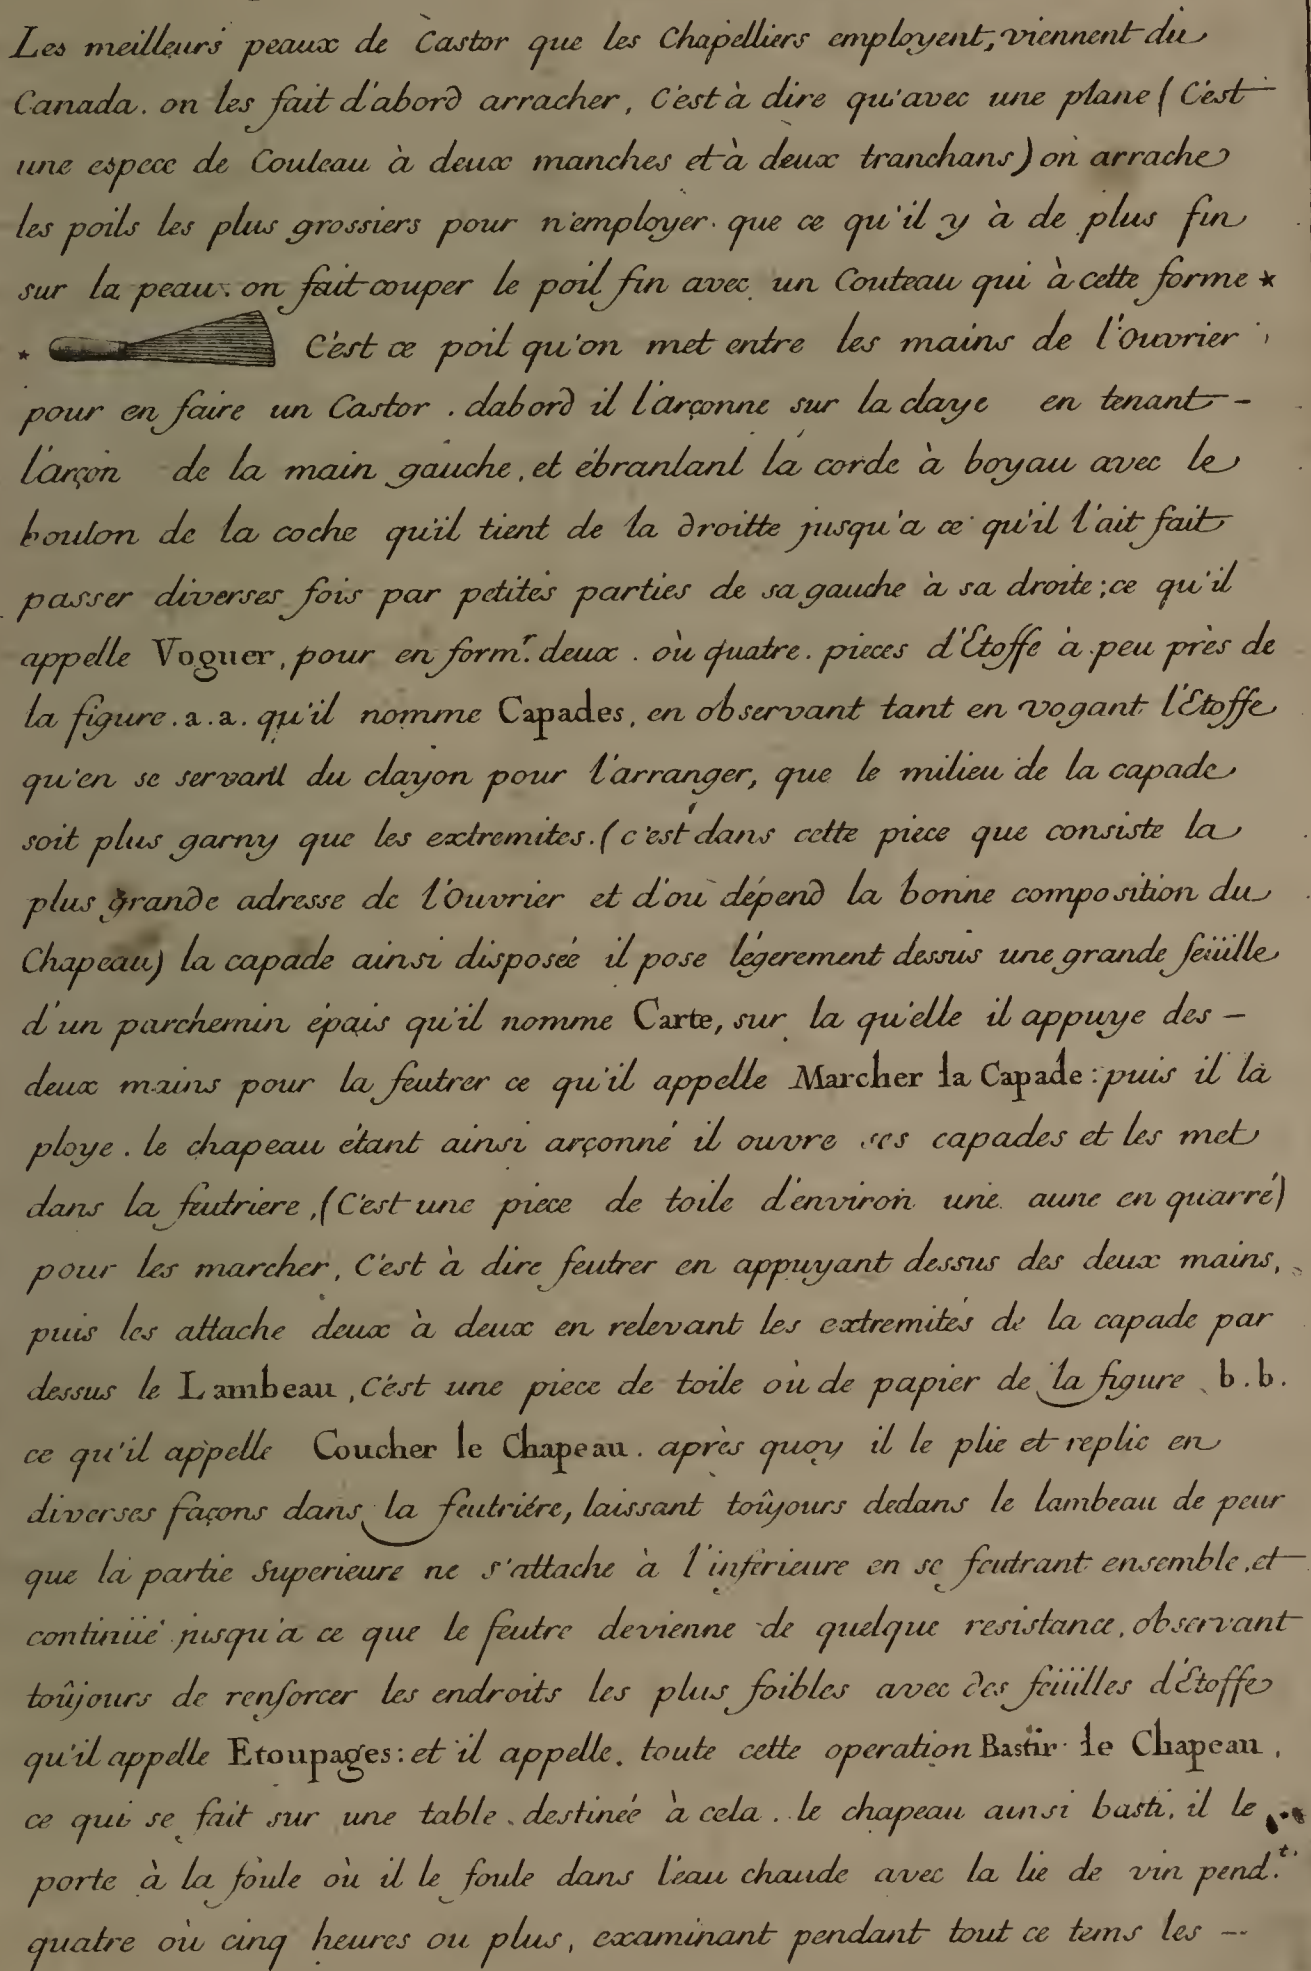 Les meilleurs peaux de Castor que les Chapelliers employent, viennent du
Canada. on les fait d'abord arracher, C'est à dire qu'avec une plane (C'est
une espece de Couteau à deux manches et à deux tranchans) on arrache
les poils les plus grossiers pour n'employer que ce qu'il y à de plus fin
sur la peau. on fait couper le poil fin avec un Couteau qui à cette forme *
* C'est ce poil qu'on met entre les mains de l'Ouvrier
pour en faire un Castor. dabord il l'arçonne sur la claye en tenant -
l'arçon de la main gauche, et ébranlant la corde à boyau avec le
boulon de la coche qu'il tient de la droitte jusqu'a ce qu'il l'ait fait
passer diverses fois par petites parties de sa gauche à sa droite; ce qu'il
appelle Voguer, pour en form.r deux. où quatre. pieces d'Etoffe à peu près de
la figure. a.a. qu'il nomme Capades, en observant tant en vogant l'Etoffe
qu'en se servant du clayon pour l'arranger, que le milieu de la capade
soit plus garny que les extremites. (c'est dans cette piece que consiste la
plus grande adresse de l'Ouvrier et d'où dépend la bonne composition du
Chapeau) la capade ainsi disposée il pose légerement dessus une grande feüille
d'un parchemin épais qu'il nomme Carte, sur la qu'elle il appuye des -
deux mains pour la feutrer ce qu'il appelle Marcher la Capade: puis il la
ploye. le chapeau étant ainsi arçonné il ouvre ses capades et les met
dans la feutriere, (C'est une piece de toile d'environ une aune en quarré)
pour les marcher, C'est à dire feutrer en appuyant dessus des deux mains,
puis les attache deux à deux en relevant les extremités de la capade par
dessus le Lambeau, C'ést une piece de toile où de papier de la figure b.b.
ce qu'il appelle Coucher le Chapeau. après quoy il le plie et replie en
diverses façons dans la feutriére, laissant toûjours dedans le lambeau de peur
que la partie Superieure ne s'attache à l'inférieure en se feutrant ensemble, et
continüé jusqu'a ce que le feutre devienne de quelque resistance, observant
toûjours de renforcer les endroits les plus foibles avec des feüilles d'Etoffe
qu'il appelle Etoupages: et il appelle. toute cette operation Bastir le Chapeau,
ce qui se fait sur une table destinée à cela. le chapeau ainsi basti, il le
porte à la foule où il le foule dans l'eau chaude avec la lie de vin pend.t
quatre où cinq heures ou plus, examinant pendant tout ce tems les -